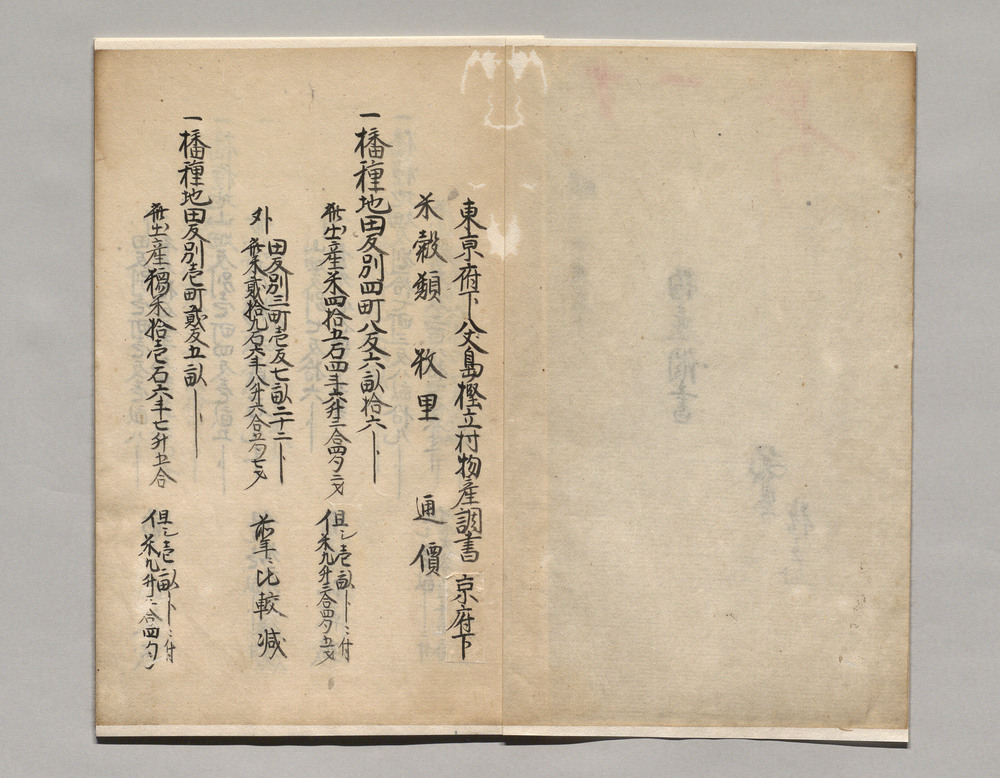 東京府下八丈島樫立村物産調書 京府下
米穀類 牧里 通價
一播種地田反別四町八反六畝拾六ト
此出産米四拾五石四斗六升三合四夕二才
但シ壱畝ートニ付
米九升三合四夕五才
外
田反別三町壱反七畝二十二ト
此米貳拾九石六斗八升六合五夕七才
前年ニ比較減
一播種地田反別壱町貳反五畝ート
此出産糯米拾壱石六斗七升五合
但シ壱畝ートニ付
米九升三合四勺